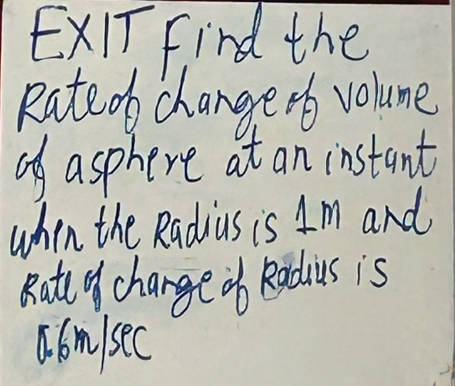 EXIT Find the
Rate of change of volume
of a sphere at an instant
when the Radius is 1m and
Rate of change of Radius is
0.6m/sec